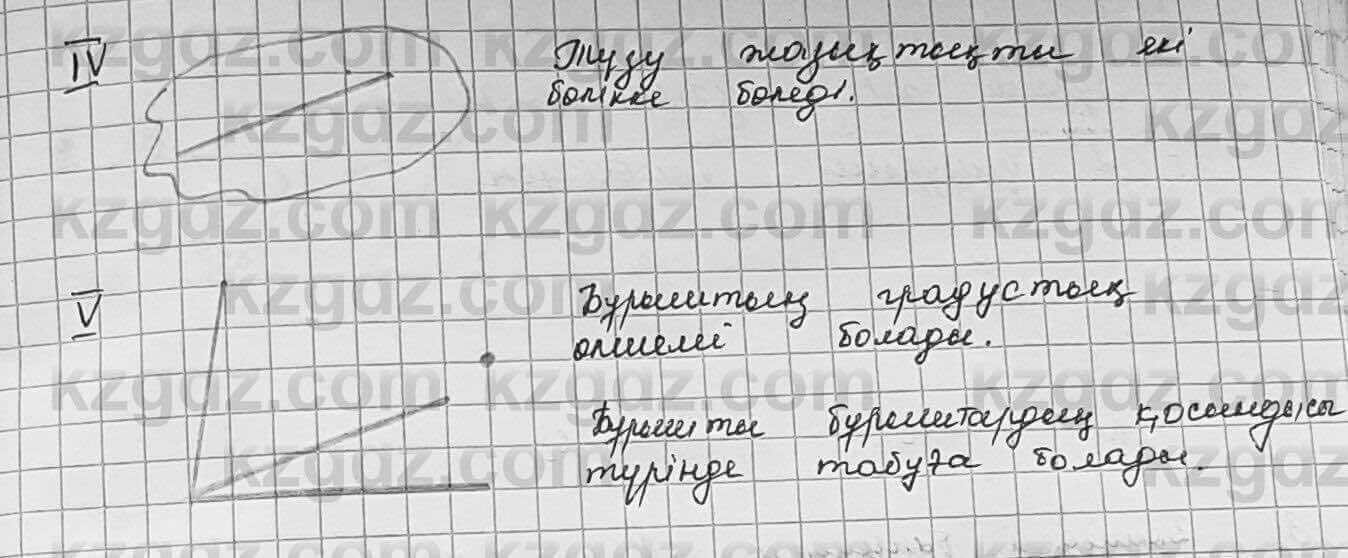 IV Түзу жазықтықты екі
бөлікке бөледі.
V Бұрыштың градустық
өлшемі болады.
Бұрышты бұрыштардың қосындысы
түрінде табуға болады.
kzgdz.com